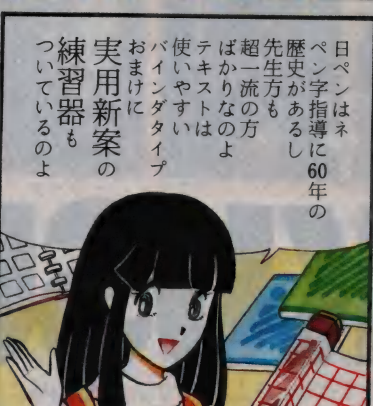 日ペンはネ
ペン字指導に60年の
歴史があるし
先生方も
超一流の方
ばかりなのよ
テキストは
使いやすい
バインダタイプ
おまけに
実用新案の
練習器も
ついているのよ